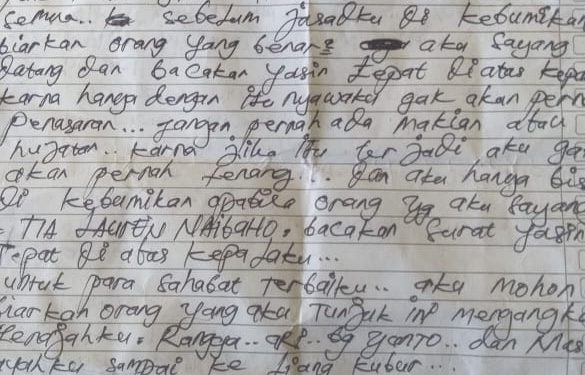 semua.. sebelum jasadku di kebumikan
biarkan orang yang benar2 aku sayang
datang dan bacakan yasin tepat diatas kepa
karna hanya dengan itu nyawaku gak akan pern
penasaran... jangan pernah ada makian atau
hujatan.. karna jika itu terjadi aku ga
akan pernah tenang... dan aku hanya bis
di kebumikan apabila orang yg aku sayang
TIA LAUREN NAIBAHO. bacakan surat yasin
Tepat di atas kepalaku...
untuk para sahabat terbaikku.. aku mohon
biarkan orang yang aku tunjuk ini mengangku
Jenajahku. Rangga.. ari.. bg yanto.. dan Mas
ayahku sampai ke liang kubur...